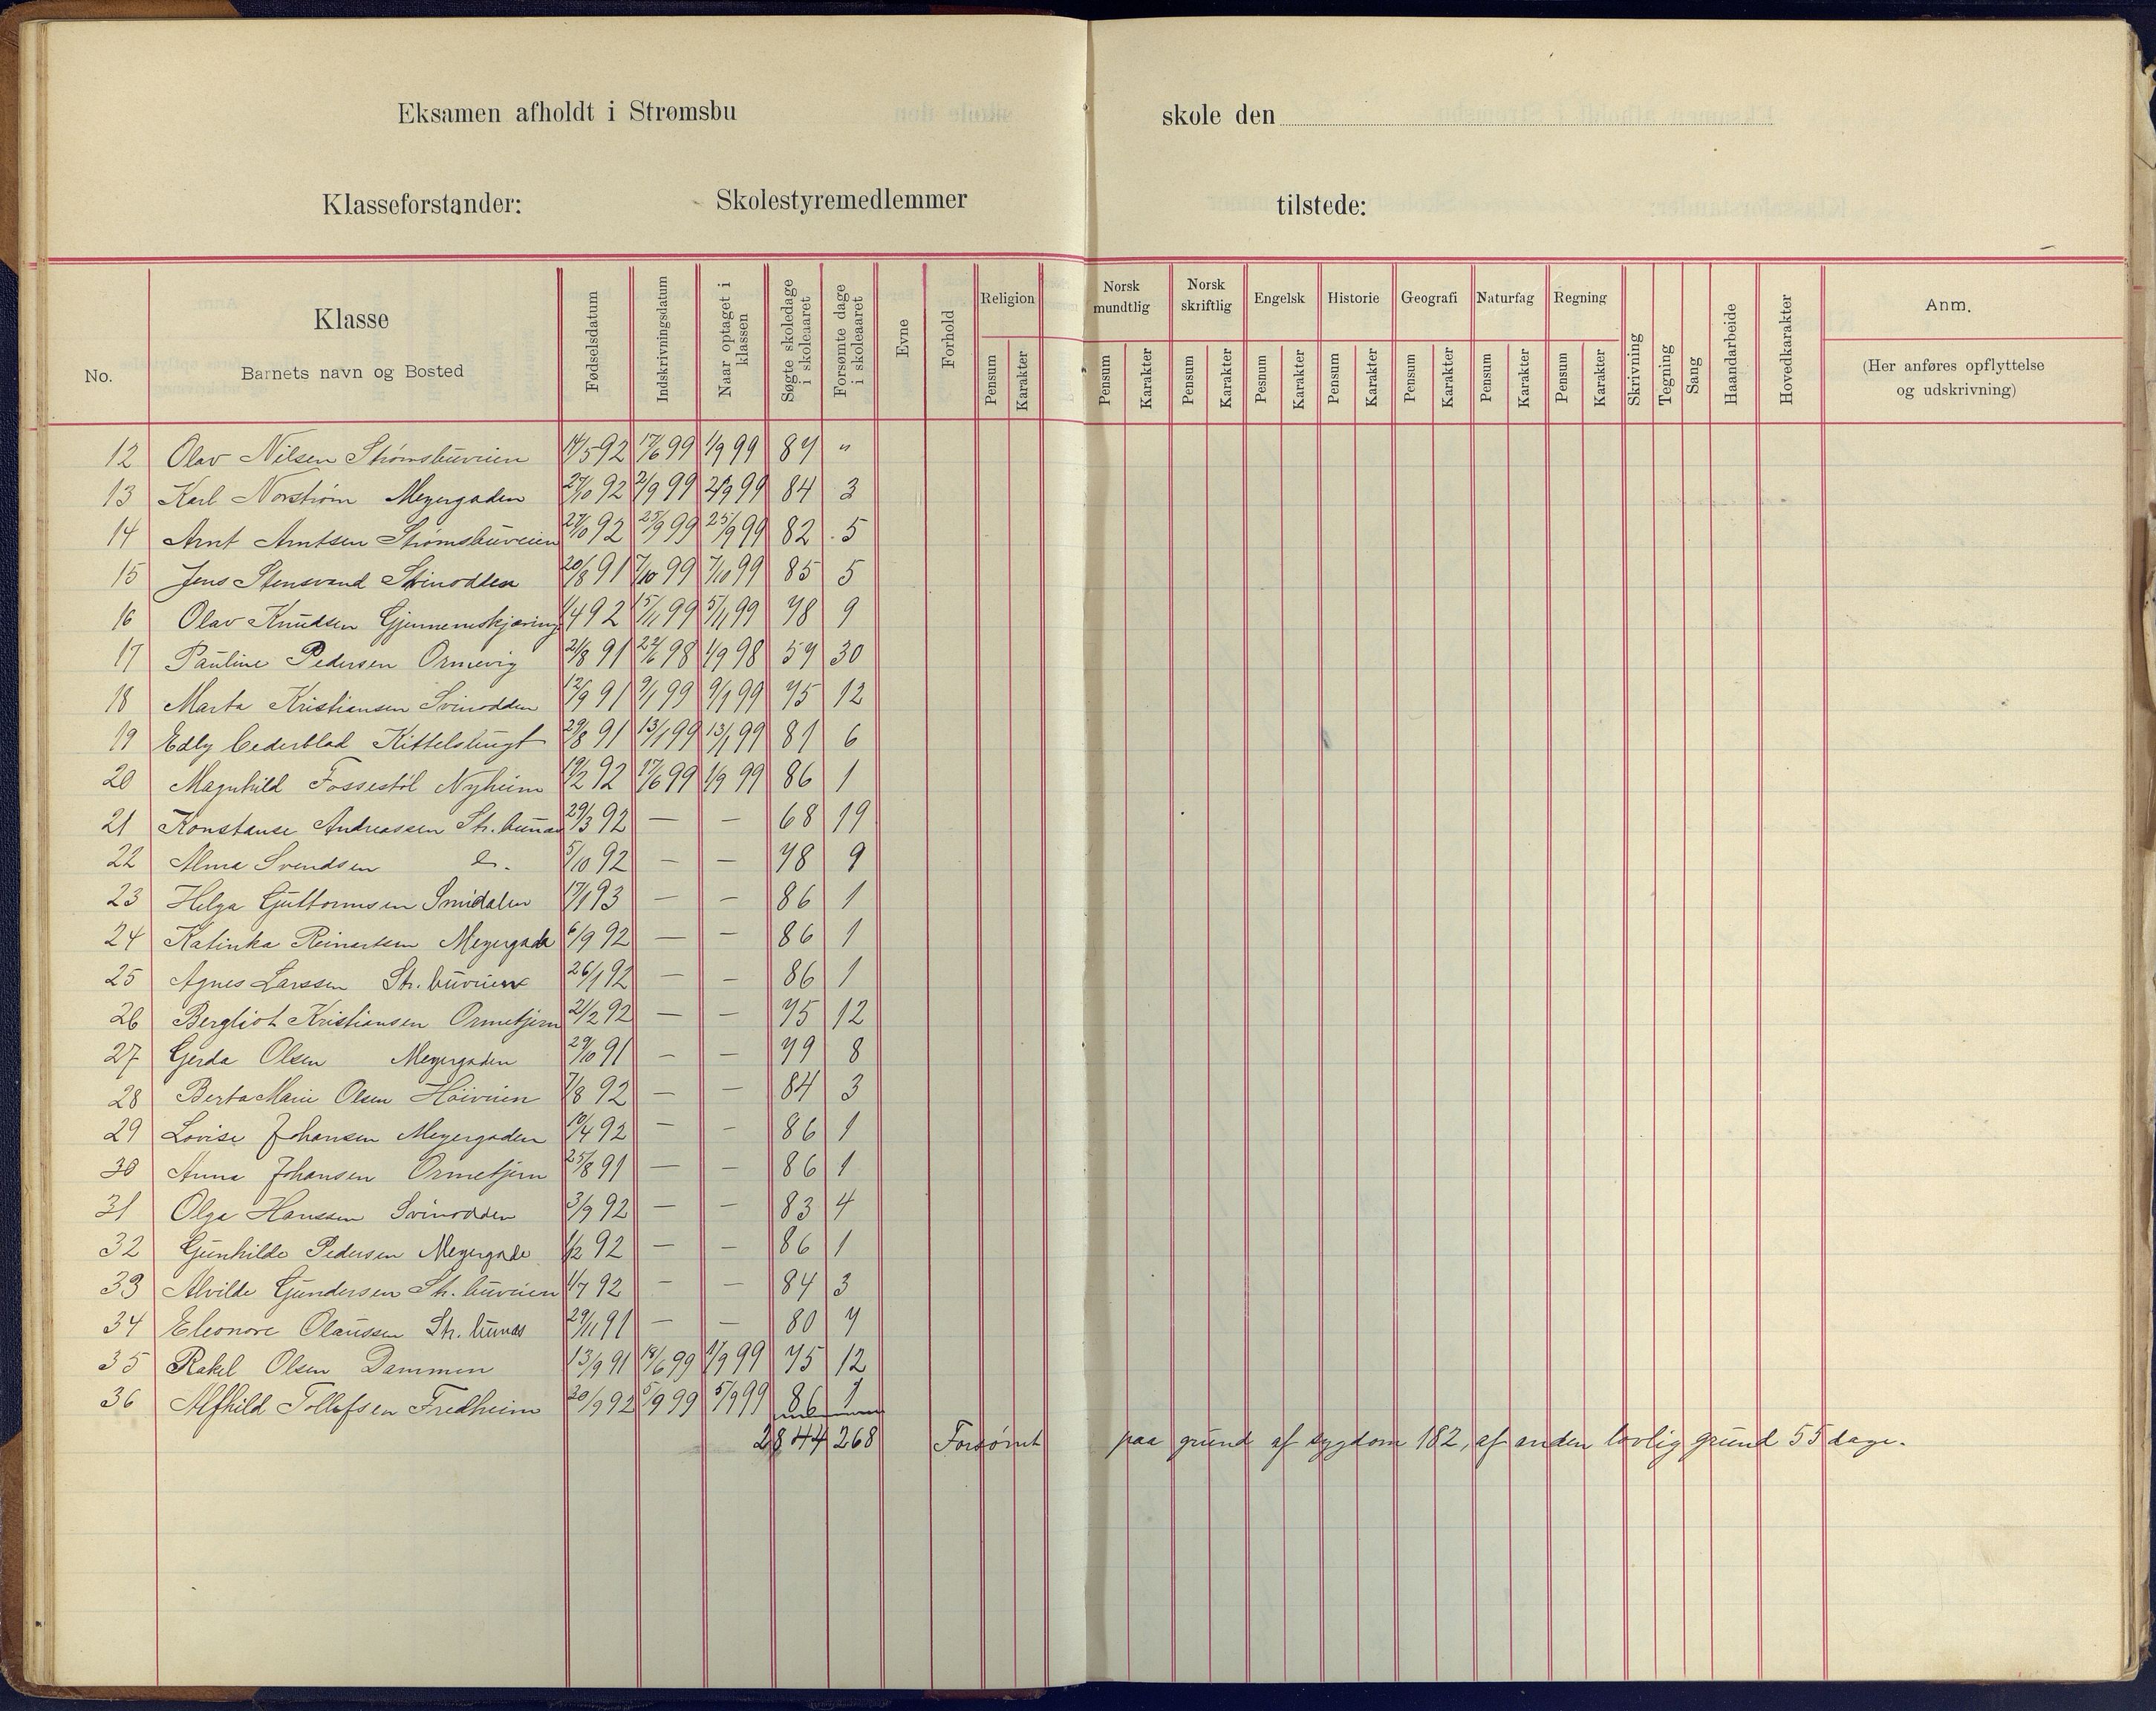 Eksamen afholdt i Strømsbu skole den
Klasseforstander: Skolestyremedlemmer tilstede:
No. Klasse Barnets navn og Bosted Fødselsdatum Indskrivningsdatum Naar optaget i klassen Søgte skoledage i skoleaaret Forsømte dage i skoleaaret Evne Forhold Religion Norsk mundtlig Norsk skriftlig Engelsk Historie Geografi Naturfag Regning Skrivning Tegning Sang Haandarbeide Hovedkarakter Anm.
(Her anføres opflyttelse og udskrivning)
Pensum Karakter Pensum Karakter Pensum Karakter Pesnum Karakter Pensum Karakter Pensum Karakter Pensum Karakter Pensum Karakter
12 Olav Nilsen Strømsbuveien 14/5 92 17/6 99 1/9 99 87 "
13 Karl Norstrøm Meyergaden 27/10 92 2/9 99 2/9 99 84 3
14 Arnt Arntsen Strømsbuveien 27/10 92 25/9 99 25/9 99 82 5
15 Jens Stensvand Svinodden 20/8 91 7/10 99 7/10 99 85 5
16 Olav Knudsen Gjennemskjæring 1/4 92 15/11 99 5/11 99 78 9
17 Pauline Pedersen Ormevig 21/8 91 22/6 98 1/9 98 57 30
18 Marta Kristiansen Svinodden 12/9 91 9/1 99 9/1 99 75 12
19 Edly Cederblad Kittelsbugt 29/8 91 13/1 99 13/1 99 81 6
20 Magnhild Fossestøl Nyheim 19/2 92 17/6 99 1/9 99 86 1
21 Konstanse Andreassen Str. bunas 29/3 92 — — 68 19
22 Alma Svendsen 5/10 92 — — 78 9
23 Helga Guttormsen Smidalen 17/1 93 — — 86 1
24 Katinka Reinertsen Meyergade 6/9 92 — — 86 1
25 Agnes Larssen Str. buveien 26/1 92 — — 86 1
26 Bergliot Kristiansen Ormetjern 21/2 92 — — 75 12
27 Gerda Olsen Meyergaden 29/10 91 — — 79 8
28 Berta Marie Olsen Höiveien 7/8 92 — — 84 3
29 Lovise Johansen Meyergaden 10/4 92 — — 86 1
30 Anna Johansen Ormetjern 25/8 91 — — 86 1
31 Olga Hanssen Svinodden 3/9 92 — — 83 4
32 Gunhilde Pedersen Meyergade 1/2 92 — — 86 1
33 Alvilde Gundersen Str. buveien 1/7 92 — — 84 3
34 Eleonore Olaussen Str. bunas 29/11 91 — — 80 7
35 Rakel Olsen Dammen 13/9 91 18/6 99 1/9 99 75 12
36 Alfhild Tollefsen Fredheim 20/9 92 5/9 99 5/9 99 86 1
2844 268 Forsømt paa grund af sygdom 182, af anden lovlig grund 55 dage.